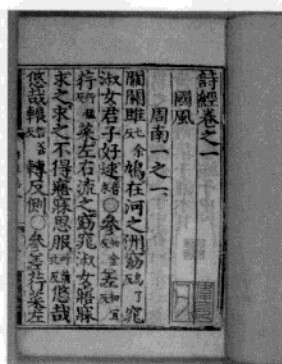 詩經卷之一
國風
周南一之一
關關雎七余反鳩在河之洲窈烏了反窕
淑女君子好逑○參初金反差初宜反
荇行孟反菜左右流之窈窕淑女寤寐
求之求之不得寤寐思服悠哉
悠哉輾轉反側○參差荇菜左